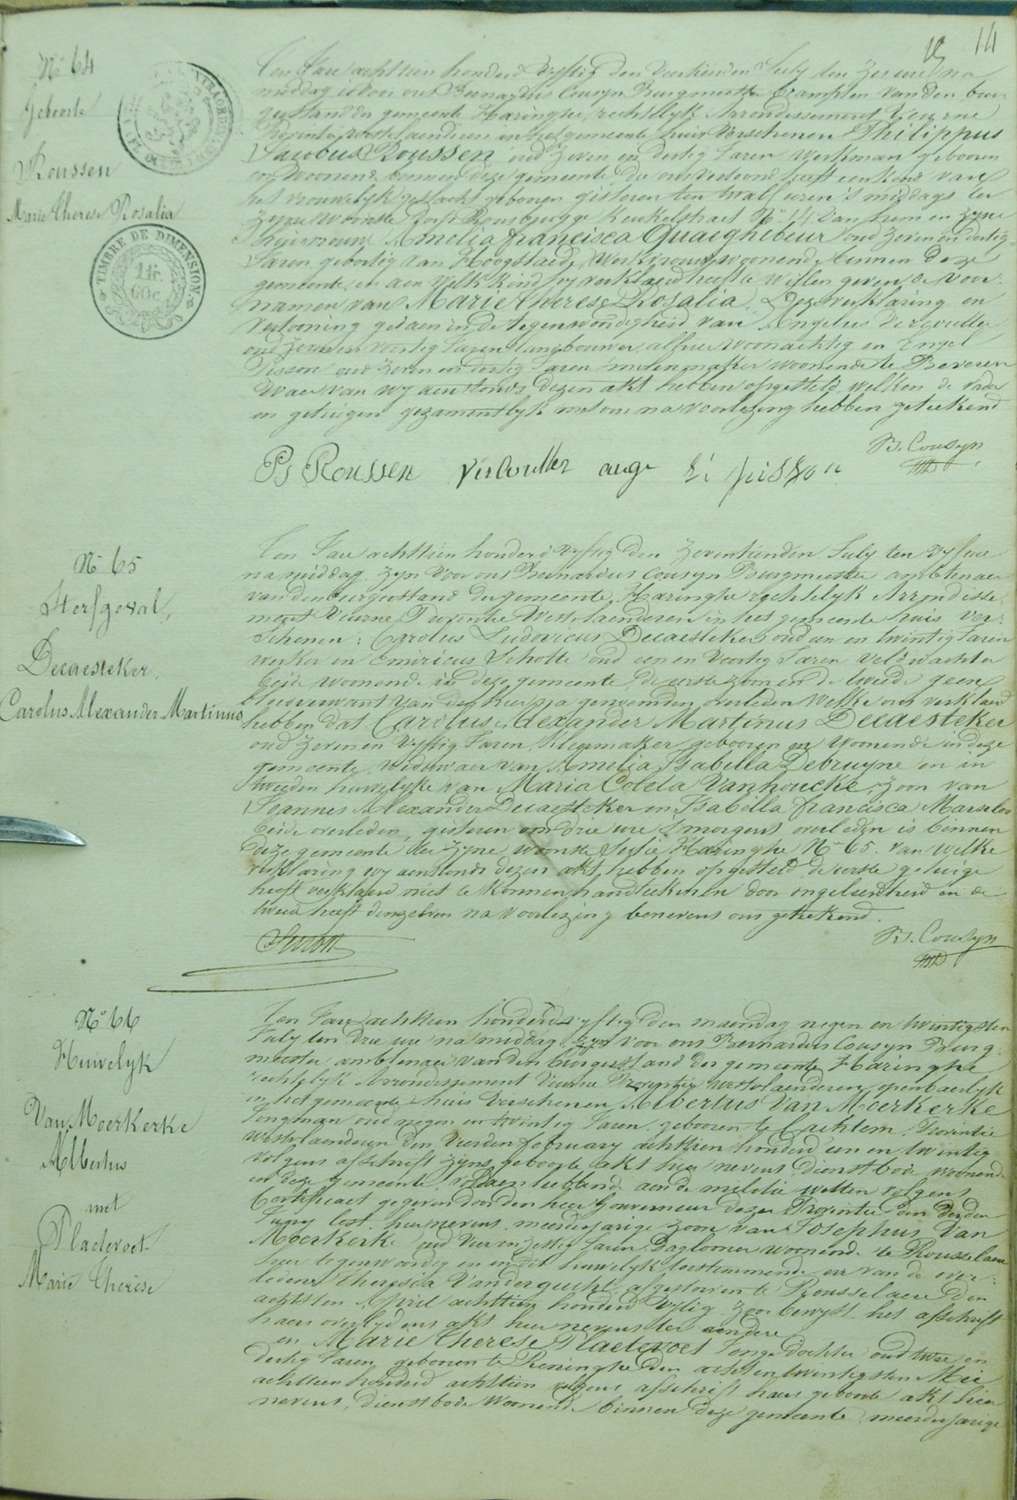 14
N° 64
Geboorte
Roussen
Marie Therese Rosalia
TIMBRE DE DIMENSION
Ten Jare achttien honderd vyftig den veertienden July ten zeven ure na
middag voor ons Bernardus Cousyn Burgmeester Ambtenaer van den bur-
gerstand der gemeente Haringhe, rechtelyk Arrondissement Veurne
Provintie Westvlaenderen in het gemeente huis verschenen Philippus
Jacobus Roussen oud zeven en dertig Jaren werkman geboren
en woonende binnen deze gemeente die ons vertoond heeft een kind van
het vrouwelyk geslacht geboren gisteren ten twalf uren 's middags ter
zyner woonste Rousbrugge kerkstraet N° 14 van hem en zyne
huisvrouw Amelia Francisca Quaeghebeur oud zeven en dertig
Jaren geboortig van Hoogstaede, werkvrouw woonende binnen deze
gemeente, en aen welk kind hy verklaerd heeft te willen geven de voor-
namen van Marie Therese Rosalia. Deze verklaring en
vertooning gedaen in de tegenwoordigheid van Angelus Vercoutter
oud zeven en veertig Jaren landbouwer, alhier woonachtig en Engel
Pisson oud zeven en dertig Jaren molenmaker woonende te Beveren
Waer van wy aenstonds dezen akt hebben opgesteld welken de vader
en getuigen gezamentlyk met ons na voorlezing hebben geteekend
B. Cousyn
PJ Roussen vercoutter ange
N° 65
Sterfgeval,
Decaesteker,
Carolus Alexander Martinus
Ten Jare achttien honderd vyftig den zeventienden July ten vyf ure
na middag zyn voor ons Bernardus Cousyn Burgmeester ambtenaer
van den burgerstand der gemeente Haringhe rechtelyk Arrondisse-
ment Veurne, Provintie Westvlaenderen in het gemeente huis ver-
schenen: Carolus Ludovicus Decaesteker oud een en twintig Jaren
werker en Emiricus Scholte oud een en veertig Jaren veldwachter
beide woonende in deze gemeente de eerste zoon en de tweede geen
bloedverwant van den hier na genoemden overleden welke ons verklaerd
hebben dat Carolus Alexander Martinus Decaesteker
oud zeven en vyftig Jaren, kleermaker, geboren en woonende in deze
gemeente, weduwaer van Amelia Isabella Debruyne en in
tweeden huwelyke van Maria Coleta Vanhoucke, zoon van
Joannes Alexander Decaesteker en Isabella Francisca
beide overleden, gisteren om drie ure 's morgens overleden is binnen
deze gemeente ter zyne woonste Haringhe N° 65. van welke
verklaring wy aenstonds dezen akt hebben opgesteld de eerste getuige
heeft verklaerd niet te konnen handteekenen door ongeleerdheid en de
tweede heeft denzelven na voorlezing benevens ons geteekend.
B. Cousyn
N° 66
Huwelyk
Van Moerkerke
Albertus
met
Plaetevoet
Marie Therese
Ten Jare achttien honderd vyftig den maendag negen en twintigsten
July ten drie ure na middag zyn voor ons Bernardus Cousyn Burg-
meester ambtenaer van den burgerstand der gemeente Haringhe
rechtelyk Arrondissement Veurne Provintie Westvlaenderen openbaerlyk
in het gemeente huis verschenen Albertus Van Moerkerke
Jongman oud negen en twintig Jaren, geboren te Lichtem Provintie
Westvlaenderen den vierden february achttien honderd een en twintig
volgens afschrift zyns geboorte akt hier nevens dienstbode woonende
in deze gemeente voldaen hebbende aen de militie wetten volgens
Certificaet gegeven door den heer Gouverneur dezer Provintie den derden
Juny lest, hier nevens, meerderjarige zoon van Josephus Van
Moerkerke oud vier en zestig Jaren Daglooner woonende te Rousselaere
hier tegenwoordig en in dit huwelyk toestemmende en van de over-
ledene Theresia Vanderquecht afgestorven te Rousselaere den
achtsten April achttien honderd vyftig zoo bewyst het afschrift
haers overlydens akt hier nevens ter eender
en Marie Therese Plaetevoet Jonge dochter oud twee en
dertig Jaren geboren te Reninghe den achtentwintigsten Mei
achttien honderd achttien volgens afschrift haer geboorte akt hier
nevens, dienstbode woonende binnen deze gemeente meerderjarige